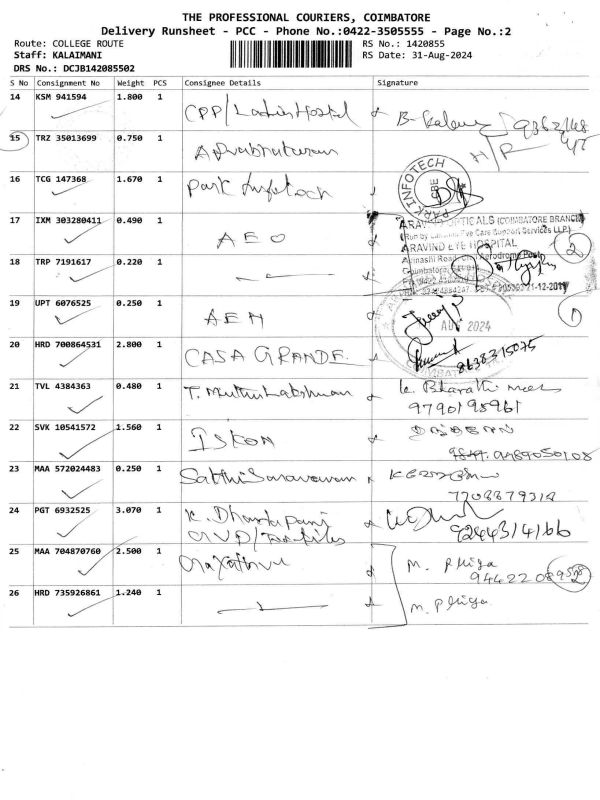 THE PROFESSIONAL COURIERS, COIMBATORE
Delivery Runsheet - PCC - Phone No.:0422-3505555 - Page No.:2
Route: COLLEGE ROUTE
RS No.: 1420855
Staff: KALAIMANI
RS Date: 31-Aug-2024
DRS No.: DCJB142085502
S No Consignment No Weight PCS Consignee Details Signature
14 KSM 941594 1.800 1 CPP/Ladies Hostel
15 TRZ 35013699 0.750 1 A Prabhakaran H/R
16 TCG 147368 1.670 1 Park Infotech
PARK INFOTECH CBE
17 IXM 303280411 0.490 1 AEO
ARAVIND OPTICALS (COIMBATORE BRANCH)
Eye Care Support Services LLP)
ARAVIND EYE HOSPITAL
Avinashi Road Aerodrome Post
Coimbatore
2
18 TRP 7191617 0.220 1
21-12-2011
19 UPT 6076525 0.250 1 AEH
1
AUG 2024
20 HRD 700864531 2.800 1 CASA GRANDE
8638315075
21 TVL 4384363 0.480 1 T. Muthu Lakshman K. Bharathi
9790195961
22 SVK 10541572 1.560 1 ISKON
9489050108
23 MAA 572024483 0.250 1 Sakthi Saravanan
7708879314
24 PGT 6932525 3.070 1 K. Dhandapani
CVP/Textiles
9244314166
25 MAA 704870760 2.500 1 M. Priya
2
26 HRD 735926861 1.240 1 M. Priya